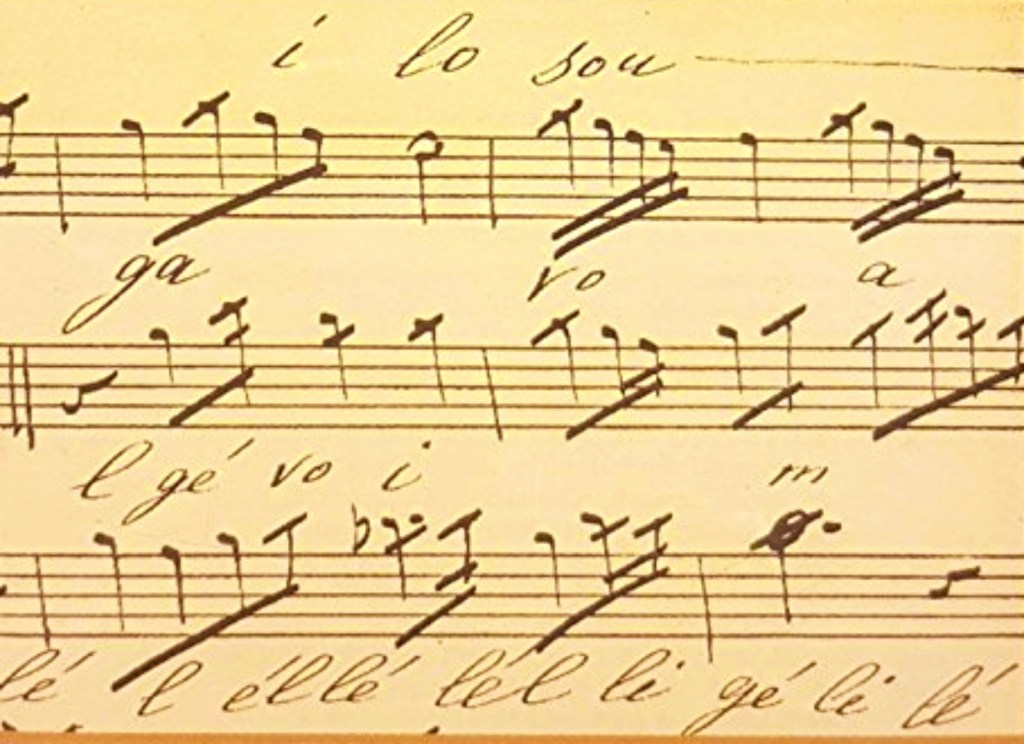 i lo sou
ga vo a
l gé vo i m
lé l éllé lél li gé li lé